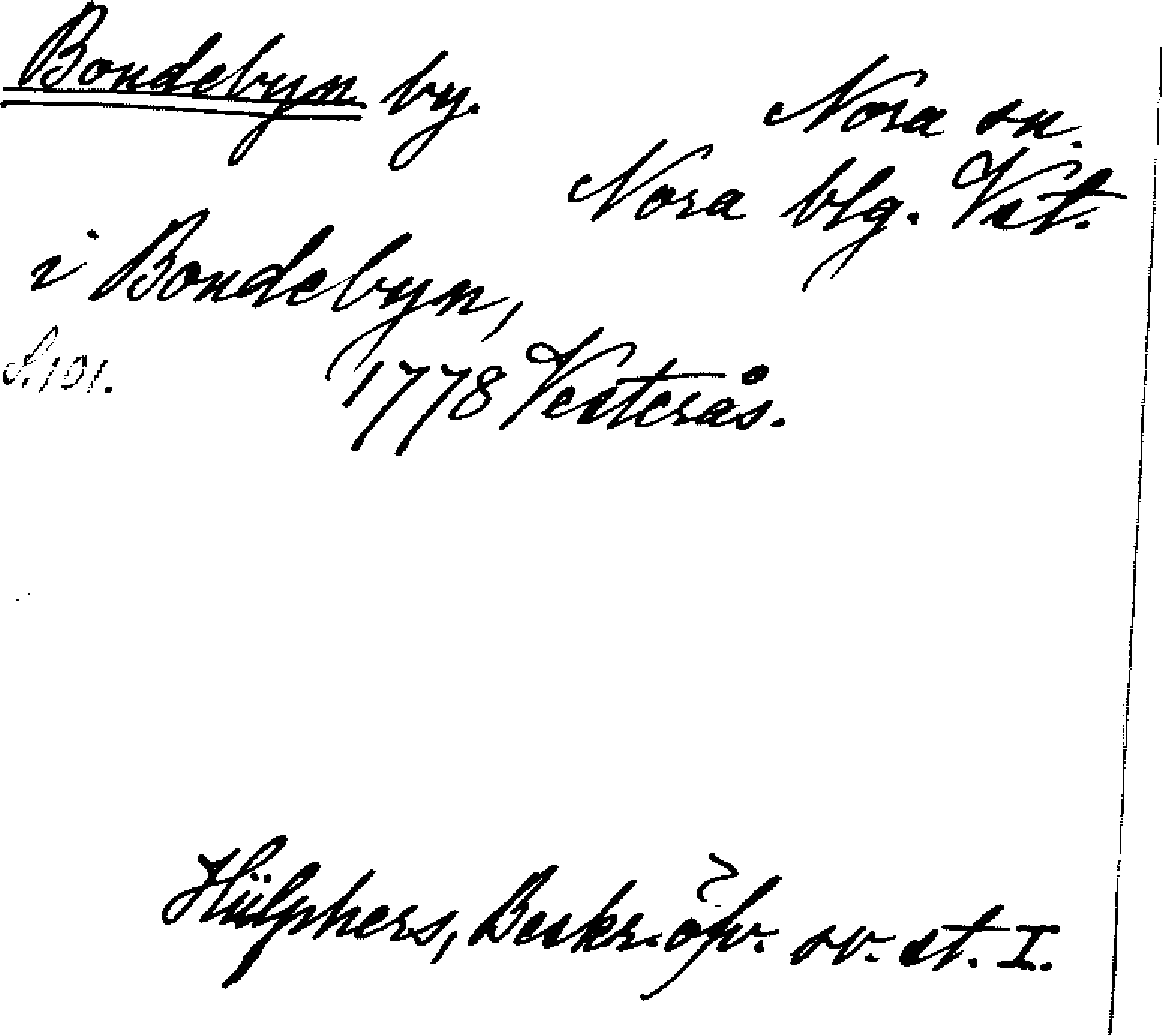 Bondebyn by.
Nora sn.
Nora blg. Vst.
i Bondebyn,
S. 101.
1778 Vesterås.
Hülphers, Beskr. öfv. sv. st. I.